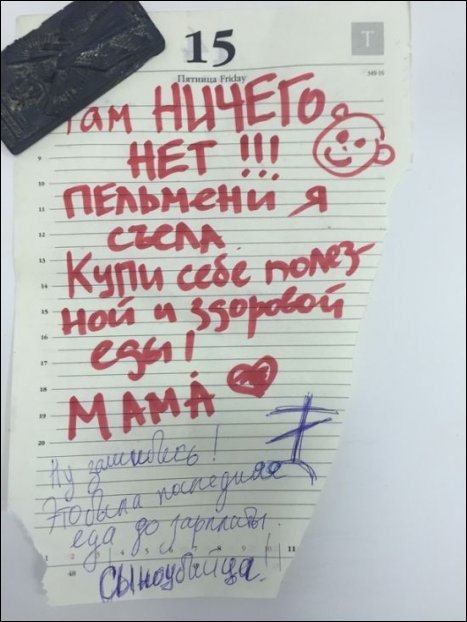 15
T
Пятница Friday
349-16
Там НИЧЕГО
НЕТ !!!
ПЕЛЬМЕНИ Я
СЪЕЛА
Купи себе полез-
ной и здоровой
еды!
МАМА
Ну зашибись!
Это была последняя
еда до зарплаты.
Сыноубийца!
9
10
11
12
13
14
15
16
17
18
19
20
1 2 3
10 11